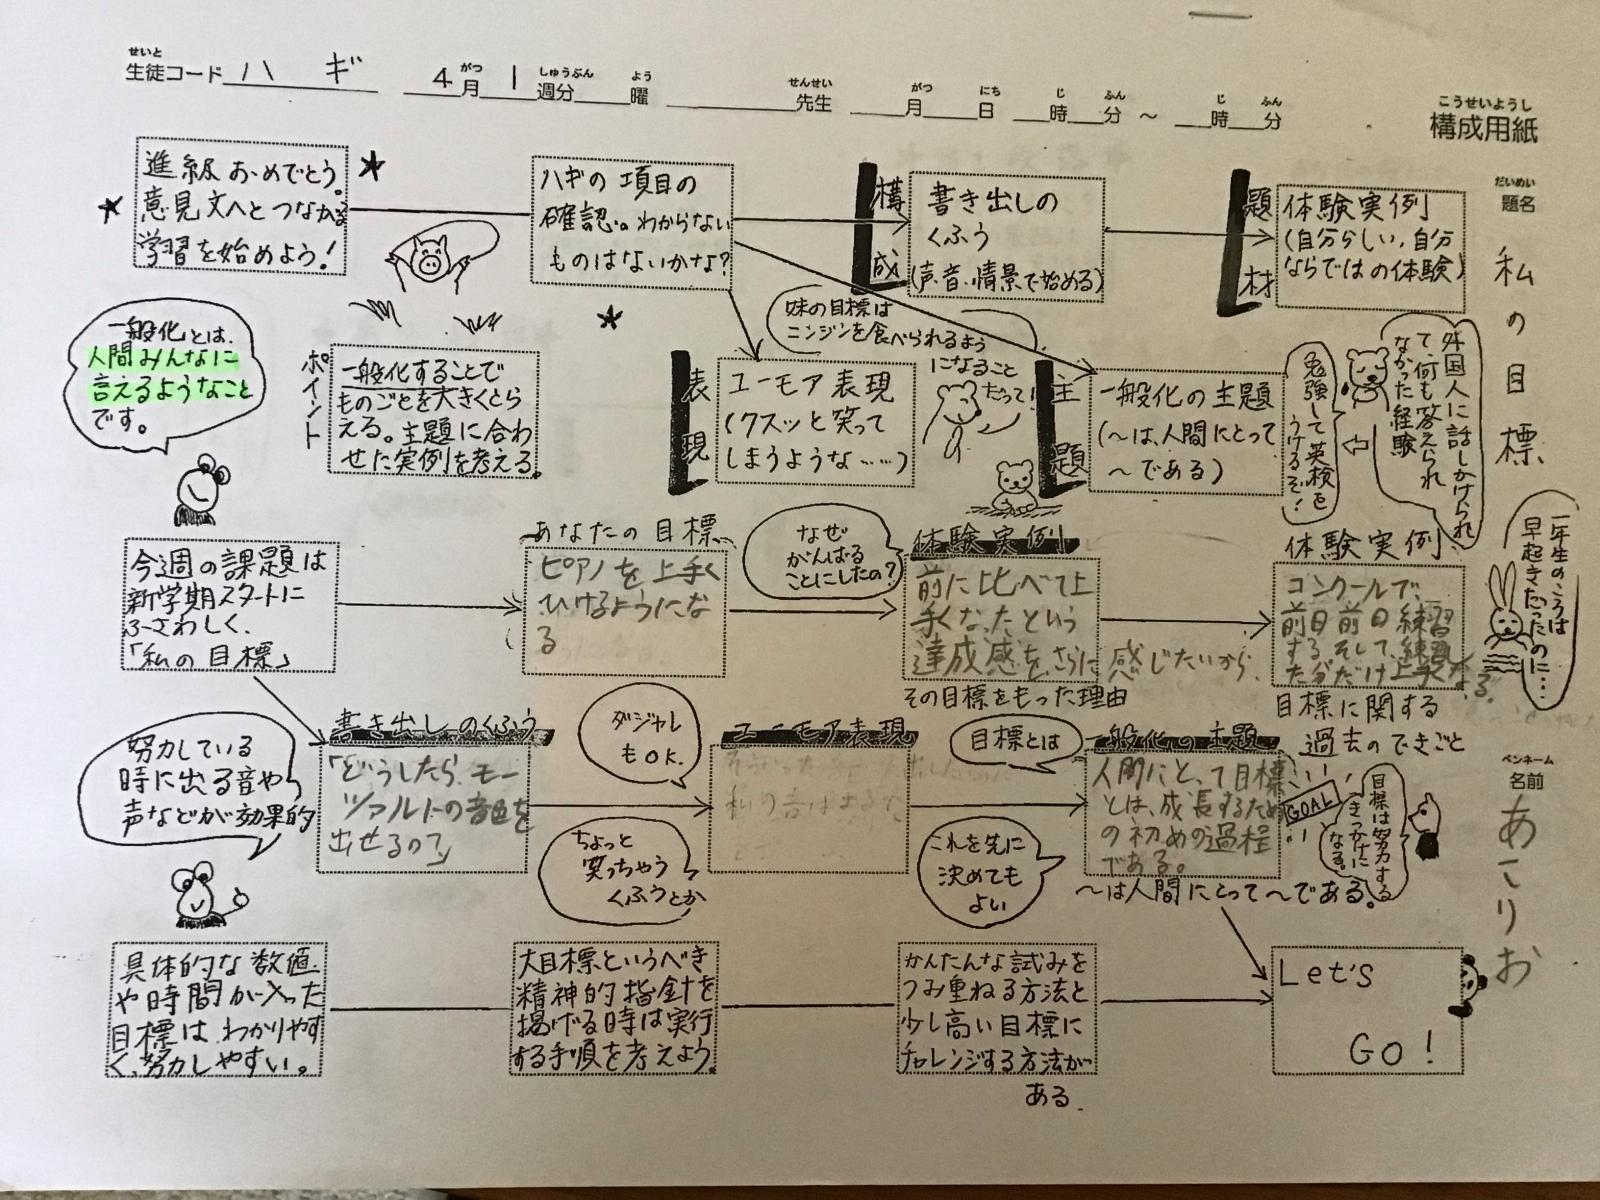 せいと
生徒コード ハ ギ 4月 1 週分 曜 先生 月 日 時 分 ～ 時 分
がつ しゅうぶん よう せんせい がつ にち じ ふん じ ふん
こうせいようし
構成用紙
だいめい
題名
私の目標
ペンネーム
名前
あこりお
進級おめでとう。
意見文へとつながる
学習を始めよう!
ハギの項目の
確認。わからない
ものはないかな?
構成
書き出しの
くふう
(声・音・情景で始める)
題材
体験実例
(自分らしい、自分
ならではの体験)
一般化とは、
人間みんなに
言えるようなこと
です。
ポイント
一般化することで
ものごとを大きくとら
える。主題に合わ
せた実例を考える。
表現
ユーモア表現
(クスッと笑って
しまうような……)
妹の目標は
ニンジンを食べられるよう
になること
だって!
主題
一般化の主題
(〜は、人間にとって
〜である)
外国人に話しかけられ
て、何も答えられ
なかった経験
勉強して英検を
うけるぞ!
今週の課題は
新学期スタートに
ふさわしく、
「私の目標」
あなたの目標
ピアノを上手く
ひけるようにな
る
なぜ
がんばる
ことにしたの?
体験実例
前に比べて上
手くなったという
達成感を、さらに感じたいから、
その目標をもった理由
体験実例
コンクールで、
前日前日練習
する。そして、練習
した分だけ上手くなる。
目標に関する
過去のできごと
一年生のころは
早起きだったのに…
努力している
時に出る音や
声などが効果的
書き出しのくふう
「どうしたら、モー
ツァルトの音色を
出せるの?」
ダジャレ
もOK.
ちょっと
笑っちゃう
くふうとか
ユーモア表現
目標とは
これを先に
決めても
よい
一般化の主題
人間にとって目標
とは、成長するため
の初めの過程
である。
〜は人間にとって〜である。
GOAL
目標は努力する
きっかけに
なる。
具体的な数値
や時間が入った
目標はわかりやす
く、努力しやすい。
大目標というべき
精神的指針を
掲げる時は実行
する手順を考えよう。
かんたんな試みを
つみ重ねる方法と
少し高い目標に
チャレンジする方法が
ある
Let's
GO!